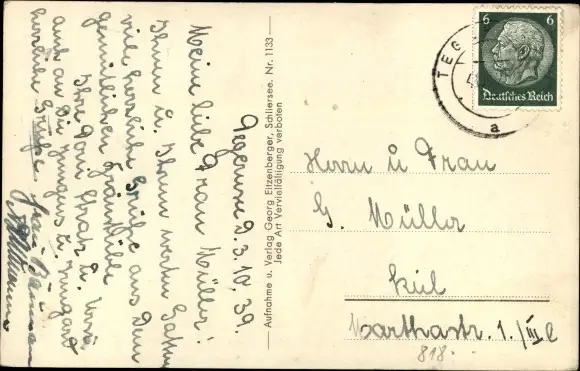 Tegernsee d. 3.10.39.
Meine liebe Frau Müller!
Ihnen u. Ihrem werten Gatten
viele herzliche Grüße aus dem
gemütlichen
Ihre Toni u.
auch an die Jungens u. Irmgard
herzliche Grüße
Aufnahme u. Verlag Georg Eitzenberger, Schliersee. Nr. 1133
Jede Art Vervielfältigung verboten
6 6
Deutsches Reich
TEG
a
Herrn u Frau
G. Müller
Kiel
Marthastr. 1./III
818.